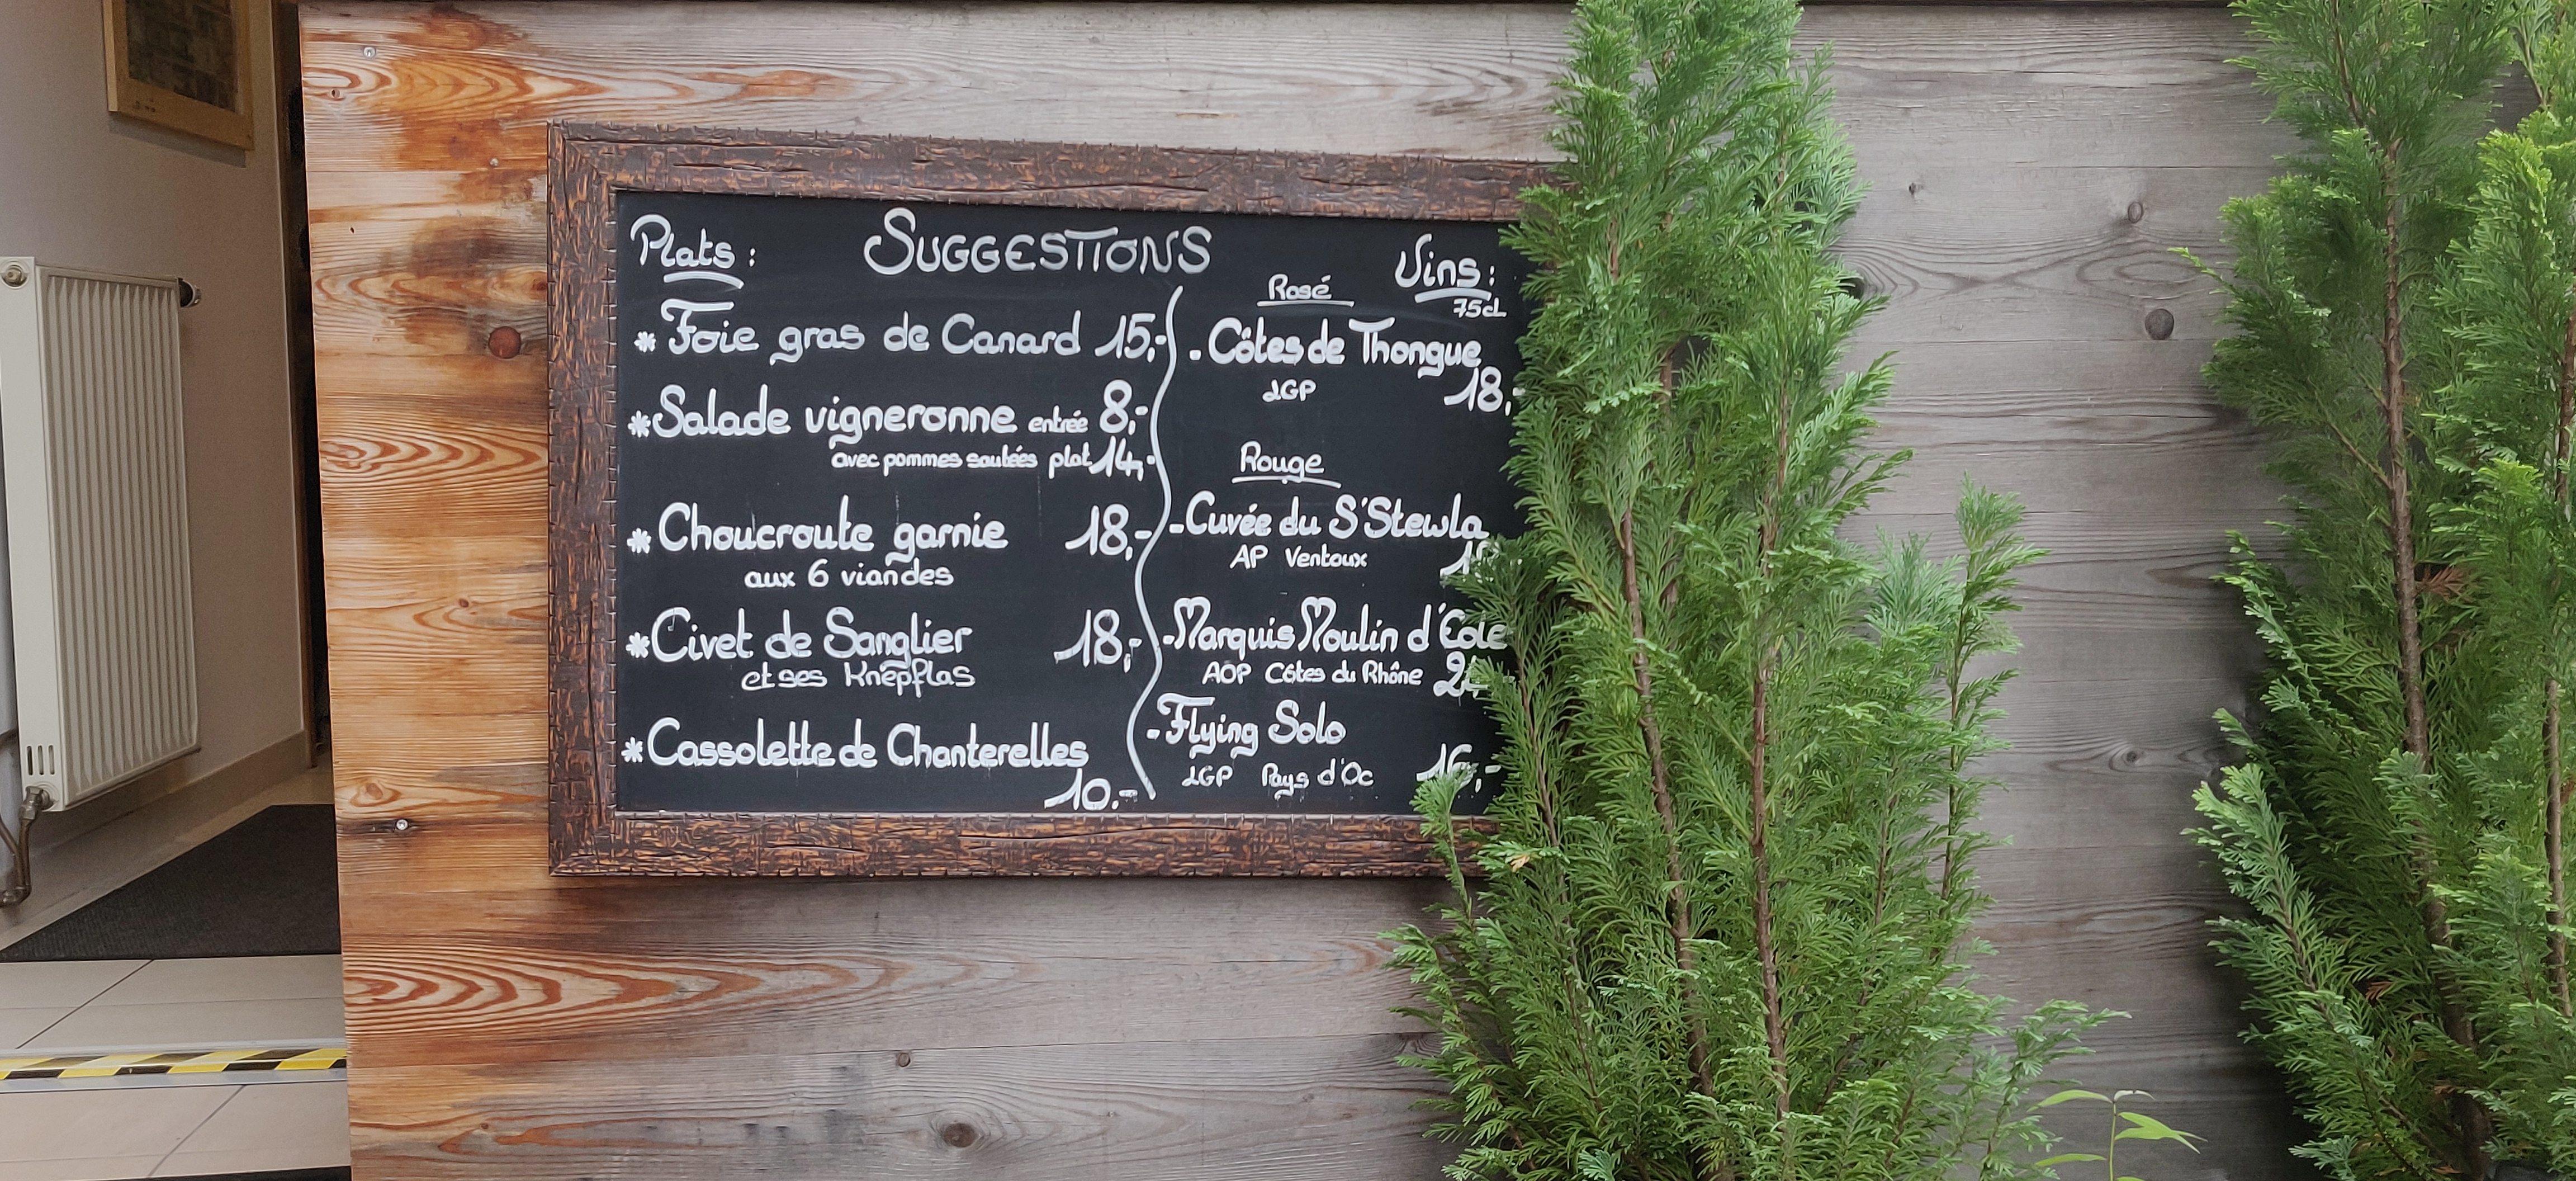 SUGGESTIONS
Plats :
* Foie gras de Canard 15,-
* Salade vigneronne entrée 8,-
avec pommes sautées plat 14,-
* Choucroute garnie 18,-
aux 6 viandes
* Civet de Sanglier 18,-
et ses Knepflas
* Cassolette de Chanterelles
10.-
Vins :
75cL
Rosé
- Côtes de Thongue
IGP 18,-
Rouge
- Cuvée du S'Stewla
AP Ventoux
- Marquis Moulin d'Eole
AOP Côtes du Rhône
- Flying Solo
IGP Pays d'Oc 16,-